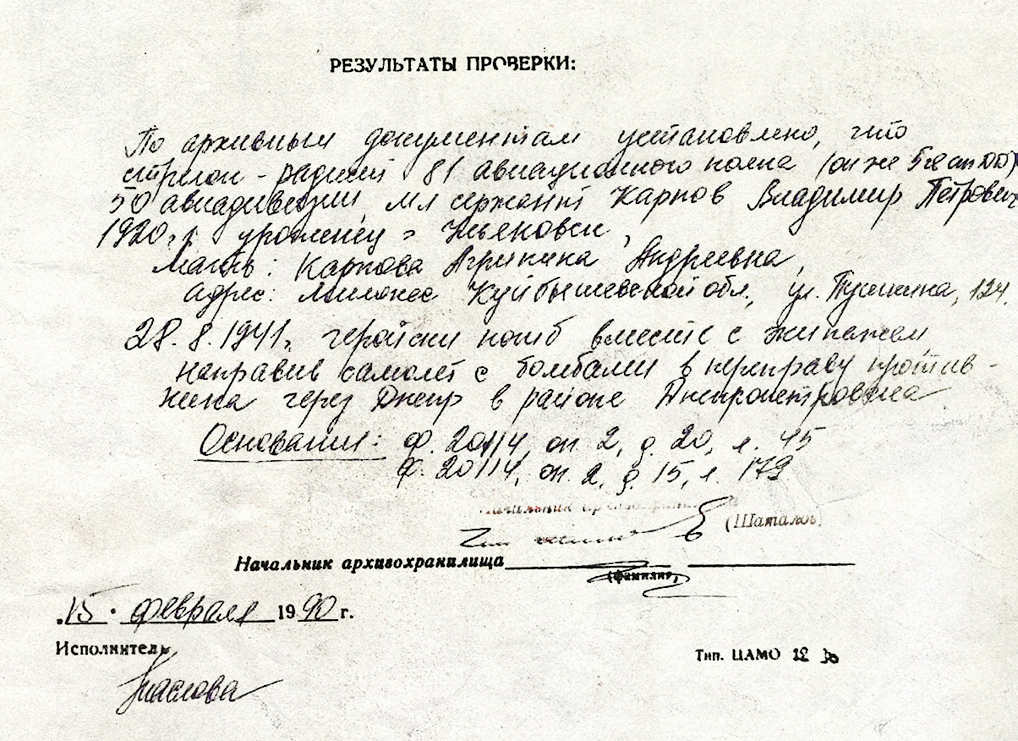 РЕЗУЛЬТАТЫ ПРОВЕРКИ:
По архивным документам установлено, что
стрелок-радист 81 авиационного полка (он же
50 авиадивизии мл сержант Карпов Владимир Петрович
1920 г.р. уроженец г Ульяновск,
мать: Карпова Агрипина Андреевна,
адрес: Мелекес Куйбышевской обл, ул. Пушкина, 124,
28.8.1941г. геройски погиб вместе с экипажем,
направив самолет с бомбами в переправу против-
ника через Днепр в районе Днепропетровска
Основания: ф. 20114, оп. 2, д. 20, л. 45
ф. 20114, оп. 2, д. 15, л. 179
(Шаталов)
Начальник архивохранилища
(фамилия)
15 февраля 1990 г.
Исполнитель
Маслова
Тип. ЦАМО